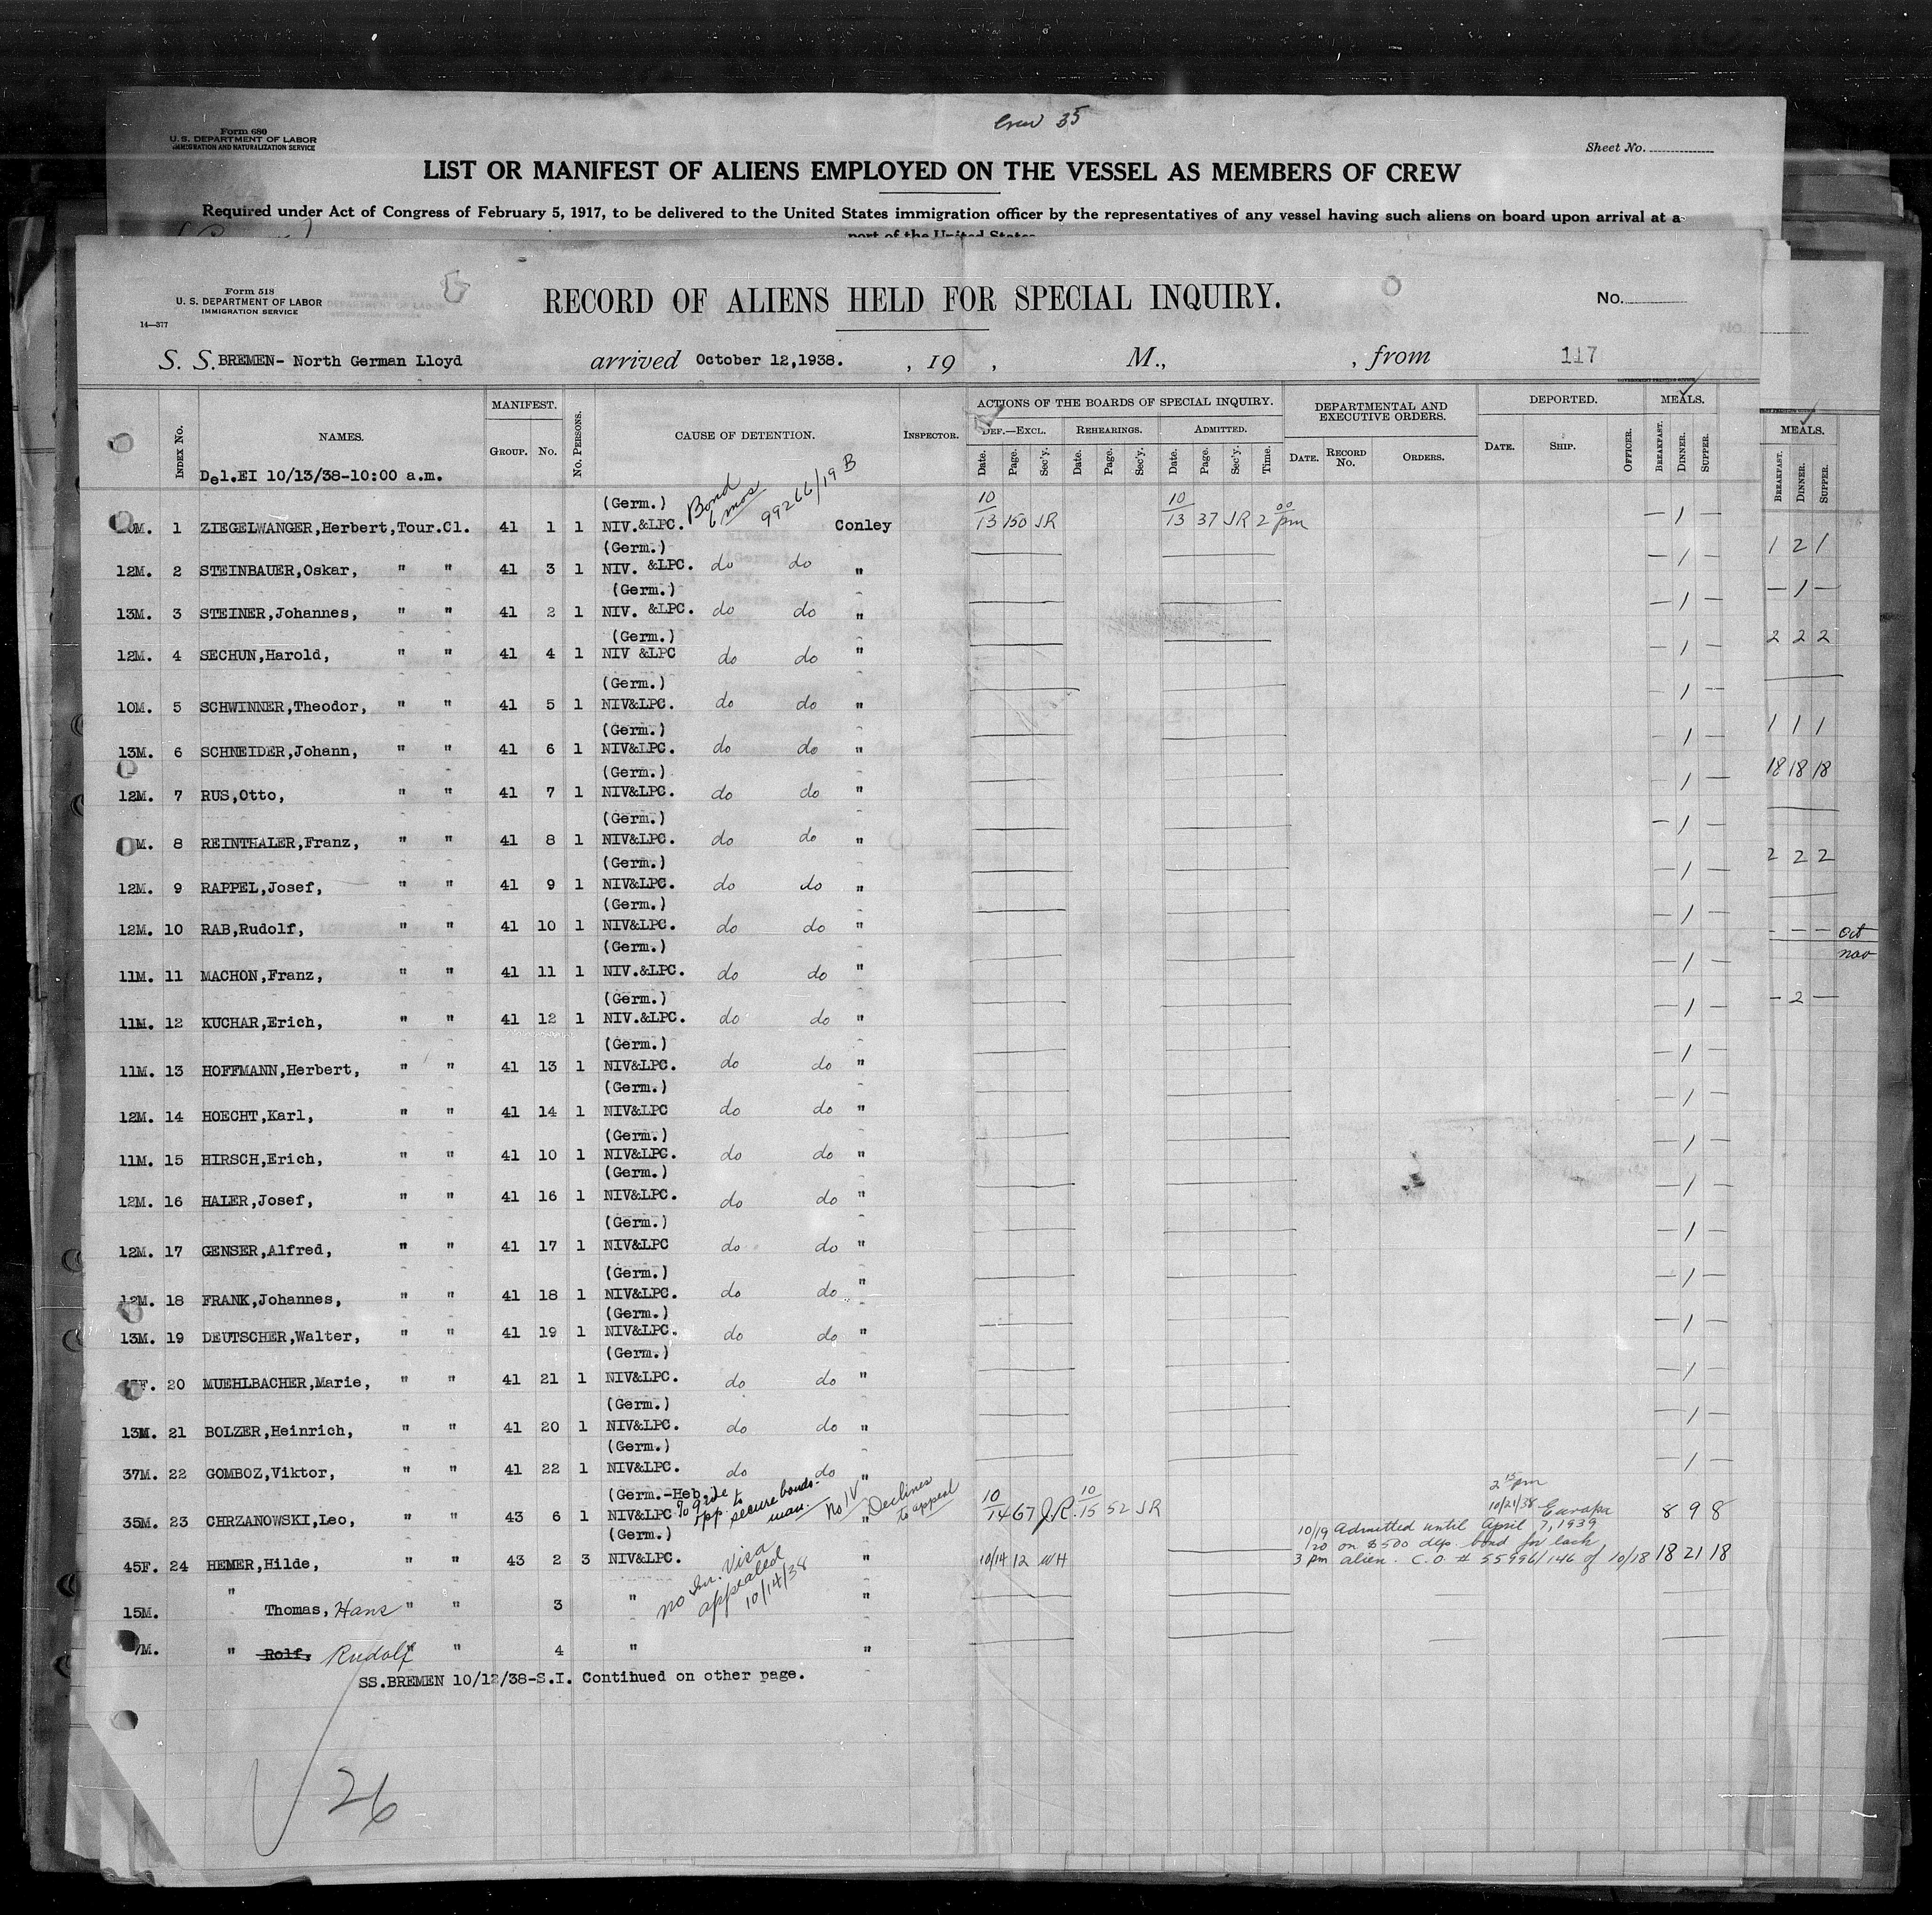 Crew 35
Form 680
U. S. DEPARTMENT OF LABOR
IMMIGRATION AND NATURALIZATION SERVICE
Sheet No.
LIST OR MANIFEST OF ALIENS EMPLOYED ON THE VESSEL AS MEMBERS OF CREW
Required under Act of Congress of February 5, 1917, to be delivered to the United States immigration officer by the representatives of any vessel having such aliens on board upon arrival at a
port of the United States
Form 518
U. S. DEPARTMENT OF LABOR
IMMIGRATION SERVICE
14—377
RECORD OF ALIENS HELD FOR SPECIAL INQUIRY.
No.
S. S. BREMEN- North German Lloyd arrived October 12,1938. , 19 , M., , from 117
INDEX No. NAMES. MANIFEST. GROUP. No. No. PERSONS. CAUSE OF DETENTION. INSPECTOR.
ACTIONS OF THE BOARDS OF SPECIAL INQUIRY. DEF.—EXCL. REHEARINGS. ADMITTED.
Date. Page. Sec'y. Date. Page. Sec'y. Date. Page. Sec'y. Time.
DEPARTMENTAL AND EXECUTIVE ORDERS. DATE. RECORD No. ORDERS.
DEPORTED. DATE. SHIP. OFFICER. MEALS. BREAKFAST. DINNER. SUPPER.
MEALS. BREAKFAST. DINNER. SUPPER.
Del.EI 10/13/38-10:00 a.m.
(Germ.) Bond 6 mos 99266/19 B
M. 1 ZIEGELWANGER,Herbert,Tour.Cl. 41 1 1 NIV.&LPC. Conley 10/13 150 JR 10/13 37 JR 2 00 pm — 1 —
(Germ.)
12M. 2 STEINBAUER,Oskar, " " 41 3 1 NIV. &LPC. do do " — 1 — 1 2 1
(Germ.)
13M. 3 STEINER,Johannes, " " 41 2 1 NIV. &LPC. do do " — 1 — — 1 —
(Germ.)
12M. 4 SECHUN,Harold, " " 41 4 1 NIV &LPC do do " — 1 — 2 2 2
(Germ.)
10M. 5 SCHWINNER,Theodor, " " 41 5 1 NIV&LPC. do do " — 1 —
(Germ.)
13M. 6 SCHNEIDER,Johann, " " 41 6 1 NIV&LPC. do do " — 1 — 1 1 1
(Germ.)
12M. 7 RUS,Otto, " " 41 7 1 NIV&LPC. do do " — 1 — 18 18 18
(Germ.)
M. 8 REINTHALER,Franz, " " 41 8 1 NIV&LPC. do do " — 1 —
(Germ.)
12M. 9 RAPPEL,Josef, " " 41 9 1 NIV&LPC. do do " — 1 — 2 2 2
(Germ.)
12M. 10 RAB,Rudolf, " " 41 10 1 NIV&LPC. do do " — 1 — - - - Oct
nov
(Germ.)
11M. 11 MACHON,Franz, " " 41 11 1 NIV.&LPC. do do " — 1 —
(Germ.)
11M. 12 KUCHAR,Erich, " " 41 12 1 NIV.&LPC. do do " — 1 — - 2 —
(Germ.)
11M. 13 HOFFMANN,Herbert, " " 41 13 1 NIV&LPC. do do " — 1 —
(Germ.)
12M. 14 HOECHT,Karl, " " 41 14 1 NIV&LPC do do " — 1 —
(Germ.)
11M. 15 HIRSCH,Erich, " " 41 10 1 NIV&LPC. do do " — 1 —
(Germ.)
12M. 16 HALER,Josef, " " 41 16 1 NIV&LPC. do do " — 1 —
(Germ.)
12M. 17 GENSER,Alfred, " " 41 17 1 NIV&LPC do do " — 1 —
(Germ.)
12M. 18 FRANK,Johannes, " " 41 18 1 NIV&LPC. do do " — 1 —
(Germ.)
13M. 19 DEUTSCHER,Walter, " " 41 19 1 NIV&LPC. do do " — 1 —
(Germ.)
F. 20 MUEHLBACHER,Marie, " " 41 21 1 NIV&LPC. do do " — 1 —
(Germ.)
13M. 21 BOLZER,Heinrich, " " 41 20 1 NIV&LPC. do do " — 1 —
(Germ.)
37M. 22 GOMBOZ,Viktor, " " 41 22 1 NIV&LPC. do do " — 1 —
(Germ.-Heb.) To give opp. to secure bonds. No IV Declines to appeal 2 15 pm
35M. 23 CHRZANOWSKI,Leo, " " 43 6 1 NIV&LPC " 10/14 67 J.R. 10/15 52 JR 10/21/38 Europa 8 9 8
(Germ.) 10/19 Admitted until April 7, 1939
1/20 on $500 dep. bond for each
45F. 24 HEMER,Hilde, " " 43 2 3 NIV&LPC. " 10/14 12 WH 3 pm alien. C.O. # 55996/146 of 10/18 18 21 18
no Im. Visa appealed 10/14/38
15M. " Thomas, Hans " " 3 " "
7M. " Rolf, Rudolf " " 4 " "
SS.BREMEN 10/12/38-S.I. Continued on other page.
26